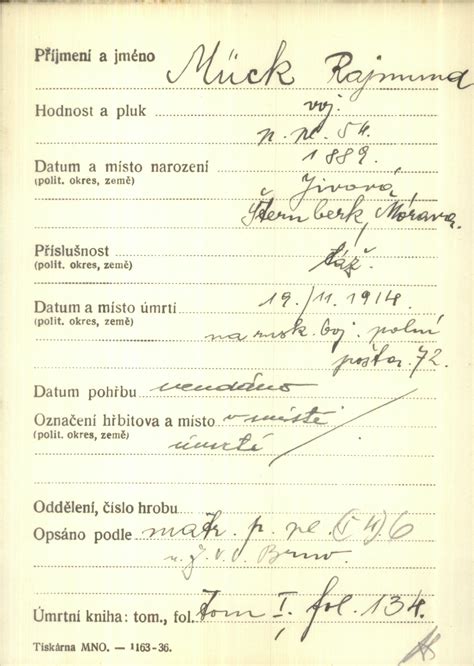 Příjmení a jméno Mück Rajmund
Hodnost a pluk voj.
p. pl. 54.
Datum a místo narození 1889.
(polit. okres, země) Jivová,
Šternberk, Morava.
Příslušnost táž.
(polit. okres, země)
Datum a místo úmrtí 19./11. 1914.
(polit. okres, země) na rusk. boj. polní
pošta 72.
Datum pohřbu neudáno
Označení hřbitova a místo v místě
(polit. okres, země) úmrtí
Oddělení, číslo hrobu
Opsáno podle matr. p. pl. 6
Brno.
Úmrtní kniha: tom., fol. tom I. fol. 134.
Tiskárna MNO. — 1163-36.